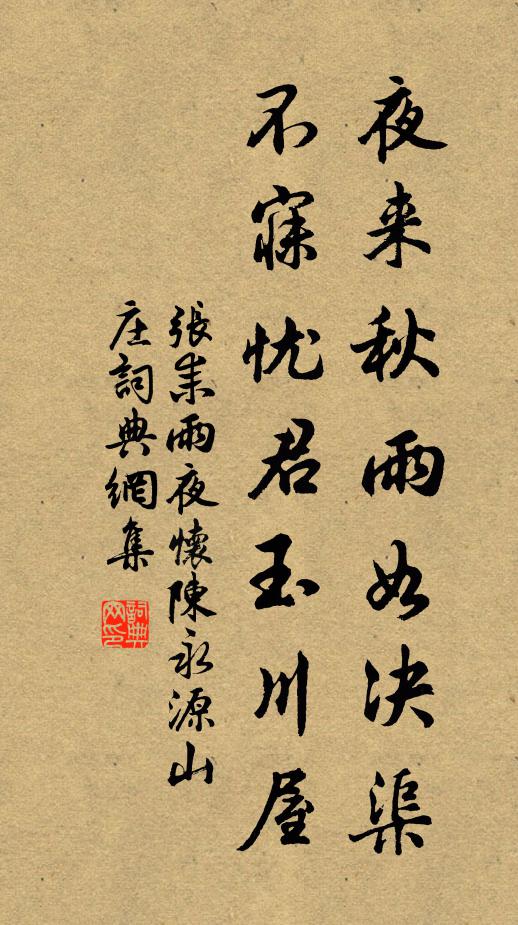 夜来秋雨如决渠
不寐忧君玉川屋
張耒雨夜懷陳永源山
庄詞典網集
詞典网印